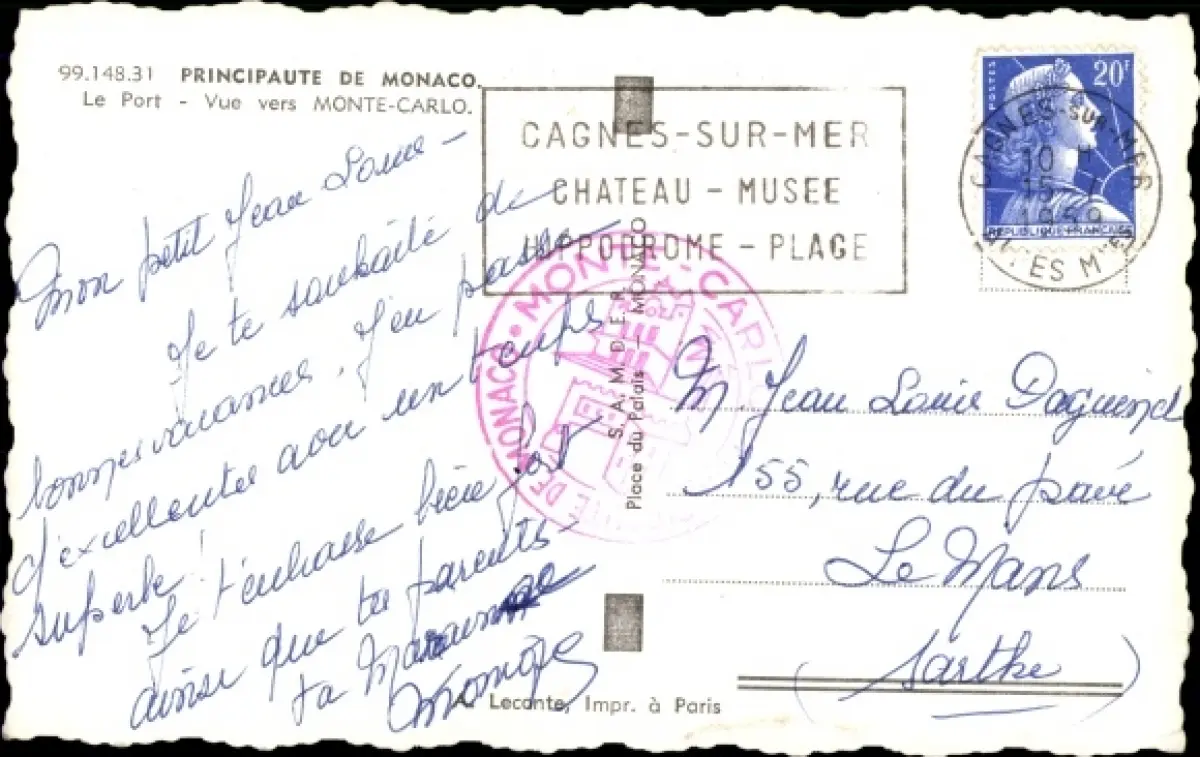 99.148.31 PRINCIPAUTE DE MONACO.
Le Port - Vue vers MONTE-CARLO.
CAGNES-SUR-MER
CHATEAU - MUSEE
HIPPODROME - PLAGE
POSTES
20F
REPUBLIQUE FRANCAISE
CAGNES-SUR-MER
10 H
15-
1959
Mon petit Jean Louis -
Je te souhaite de
bonnes vacances. J'en passe
d'excellentes avec un temps
superbe !
Je t'embrasse bien fort
ainsi que tes parents -
ta Marraine
MONTE-CARLO
MONACO
S.A.M.D.E.R.
Place du Palais - MONACO
M. Jean Louis
155, rue du pavé
Le Mans
(Sarthe)
Leconte, Impr. à Paris